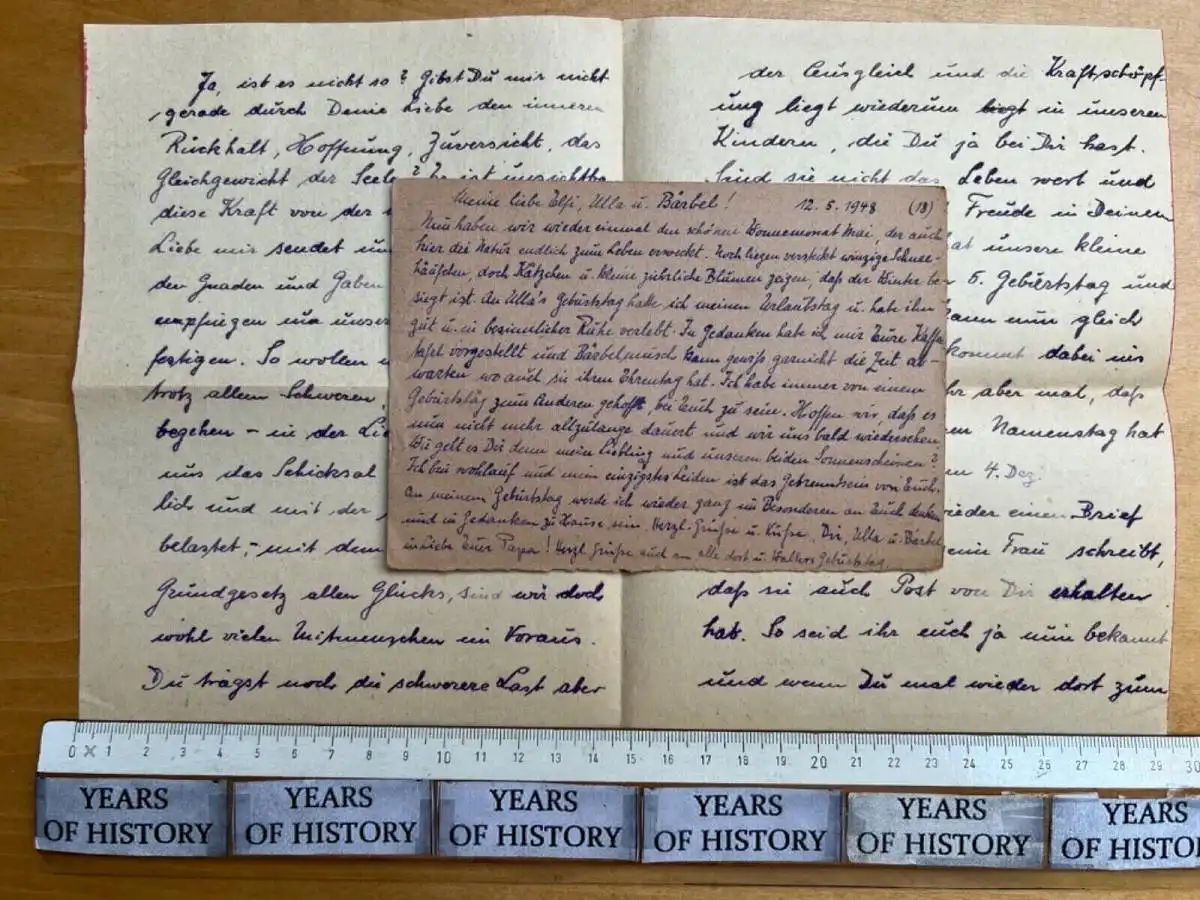 Ja, ist es nicht so? Gibst Du mir nicht
gerade durch Deine Liebe den inneren
Rückhalt, Hoffnung, Zuversicht, das
Gleichgewicht der Seele? Es ist
diese Kraft von der
Liebe mir sendet
den Gnaden und Gaben
empfingen
festigen. So wollen
trotz allem Schweren,
begehen – in der
uns das Schicksal
lich und mit der
belastet, – mit dem
Grundgesetz allen Glücks, sind wir doch
wohl vielen Mitmenschen im Voraus.
Du trägst noch die schwerere Last aber
der Ausgleich und die Kraftschöpf-
ung liegt wiederum liegt in unseren
Kindern, die Du ja bei Dir hast.
Sind sie nicht das Leben wert und
Freude in Deinem
unsere kleine
5. Geburtstag und
kann nun gleich
kommt dabei nis
aber mal, daß
Namenstag hat
4. Dez
wieder einen Brief
Frau schreibt,
daß sie auch Post von Dir erhalten
hat. So seid ihr euch ja nun bekannt
und wenn Du mal wieder dort zum
Meine liebe Elfi, Ulla u. Bärbel! 12. 5. 1948 (18)
Nun haben wir wieder einmal den schönen Wonnemonat Mai, der auch
hier die Natur endlich zum Leben erweckt. Noch liegen versteckt winzige Schnee-
häufchen, doch Kätzchen u. kleine zierliche Blumen zeigen, daß der Winter be-
siegt ist. An Ulla's Geburtstag hatte ich meinen Urlaubstag u. habe ihn
gut u. in besinnlicher Ruhe verlebt. In Gedanken habe ich mir Eure Kaffee
tafel vorgestellt und Bärbel kann gewiß garnicht die Zeit ab-
warten wo auch sie ihren Ehrentag hat. Ich habe immer von einem
Geburtstag zum Anderen gehofft, bei Euch zu sein. Hoffen wir, daß es
nun nicht mehr allzulange dauert und wir uns bald wiedersehen
Wie geht es Dir denn mein Liebling und unseren beiden Sonnenscheinen?
Ich bin wohlauf und mein einzigstes Leiden ist das Getrenntsein von Euch.
An meinem Geburtstag werde ich wieder ganz im Besonderen an Euch denken
und in Gedanken zu Hause sein. Herzl. Grüße u. Küße, Dir, Ulla u. Bärbel
in Liebe Euer Papa! Herzl. Grüße auch an alle dort u. Walters Geburtstag.
0 1 2 3 4 5 6 7 8 9 10 11 12 13 14 15 16 17 18 19 20 21 22 23 24 25 26 27 28 29 30
YEARS
OF HISTORY
YEARS
OF HISTORY
YEARS
OF HISTORY
YEARS
OF HISTORY
YEARS
OF HISTORY
YEARS
OF HISTO